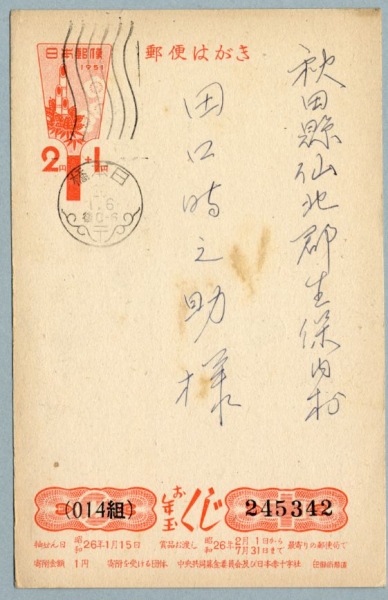 日本郵便
1951
2円+1円
郵便はがき
秋田縣仙北郡生保内村
田口時之助様
(014組)
お年玉くじ
245342
抽せん日 昭和26年1月15日 賞品お渡し 昭和26年2月1日から7月31日まで 最寄りの郵便局で
寄附金額 1円 寄附を受ける団体 中央共同募金委員会及び日本赤十字社